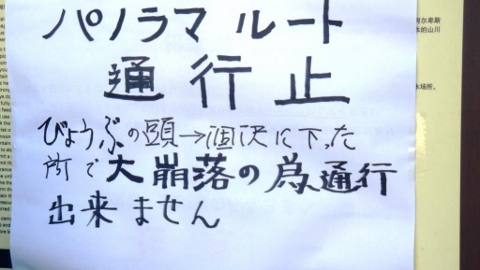 パノラマ ルート
通行止
びょうぶの頭→涸沢に下った
所で大崩落の為通行
出来ません
阿尔卑斯
水的山川